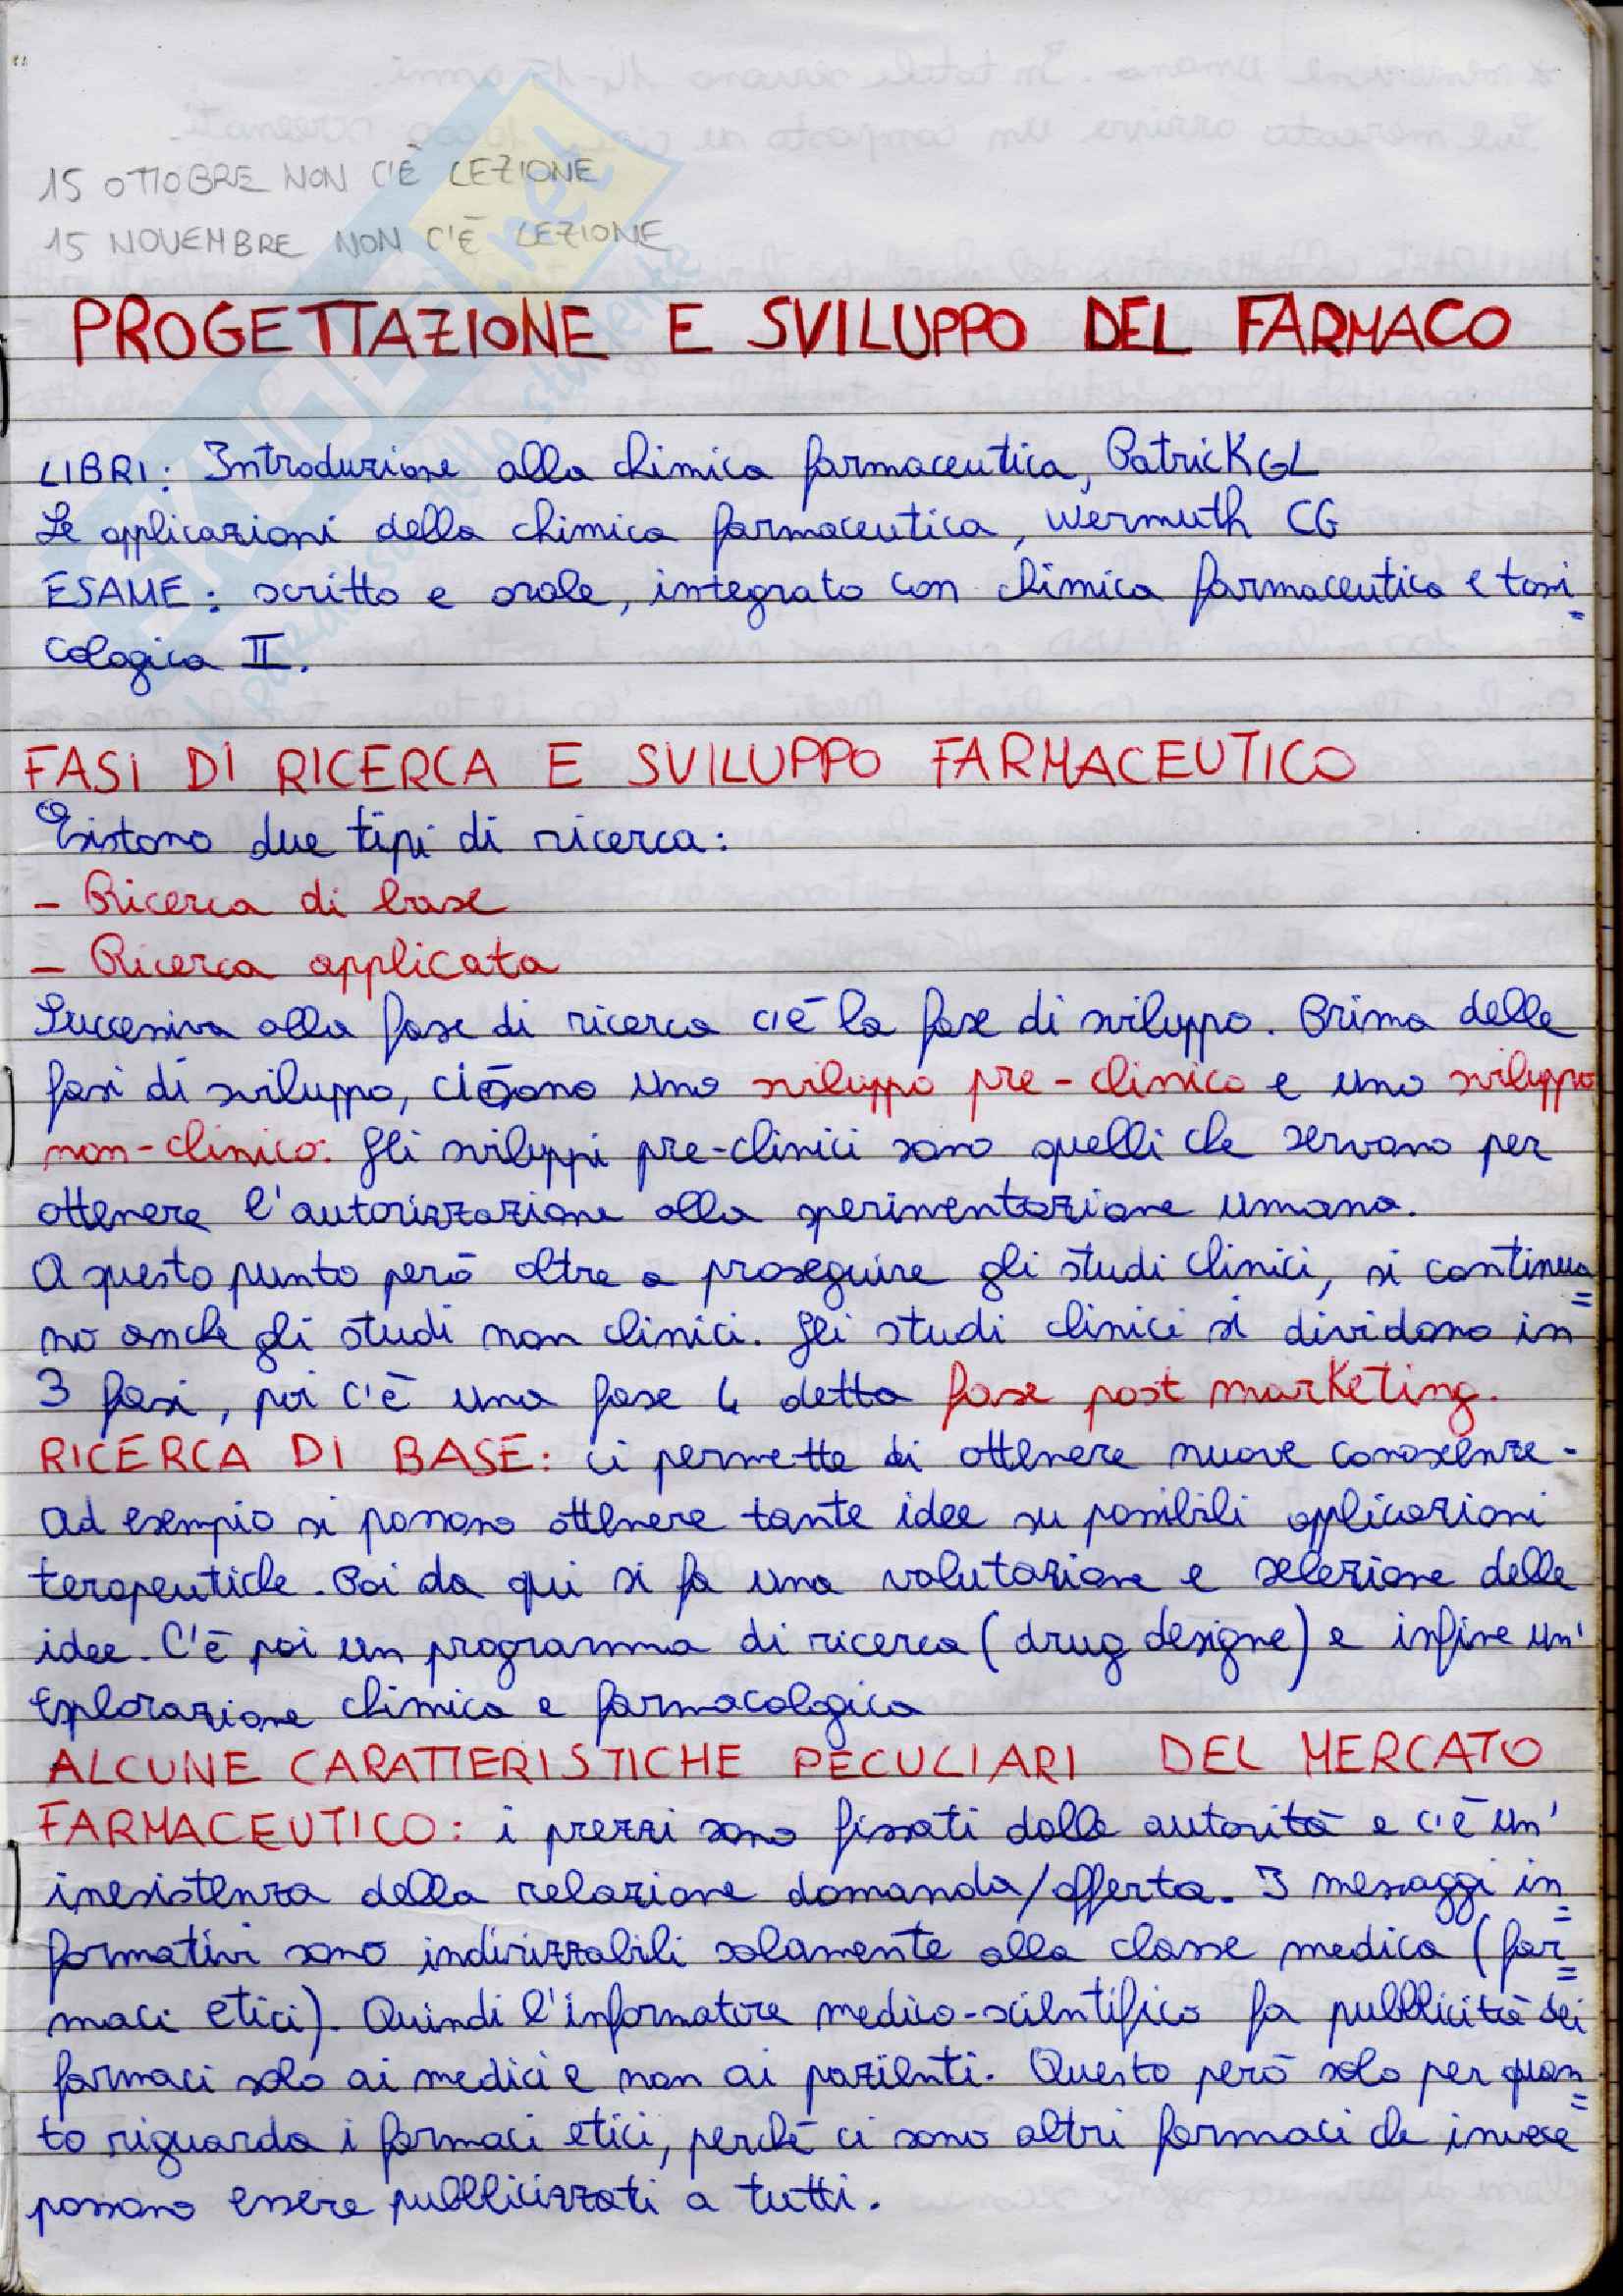 15 OTTOBRE NON C'È LEZIONE
15 NOVEMBRE NON C'È LEZIONE
PROGETTAZIONE E SVILUPPO DEL FARMACO
LIBRI: Introduzione alla chimica farmaceutica, Patrick GL
Le applicazioni della chimica farmaceutica, Wermuth CG
ESAME: scritto e orale, integrato con chimica farmaceutica e tossi=
cologica II.
FASI DI RICERCA E SVILUPPO FARMACEUTICO
Esistono due tipi di ricerca:
- Ricerca di base
- Ricerca applicata
Successiva alla fase di ricerca c'è la fase di sviluppo. Prima delle
fasi di sviluppo, ci sono uno sviluppo pre-clinico e uno sviluppo
non-clinico. Gli sviluppi pre-clinici sono quelli che servono per
ottenere l'autorizzazione alla sperimentazione umana.
A questo punto però oltre a proseguire gli studi clinici, si continua=
no anche gli studi non clinici. Gli studi clinici si dividono in
3 fasi, poi c'è una fase 4 detta fase post marketing.
RICERCA DI BASE: ci permette di ottenere nuove conoscenze.
Ad esempio si possono ottenere tante idee su possibili applicazioni
terapeutiche. Poi da qui si fa una valutazione e selezione delle
idee. C'è poi un programma di ricerca (drug designe) e infine un'
esplorazione chimica e farmacologica
ALCUNE CARATTERISTICHE PECULIARI DEL MERCATO
FARMACEUTICO: i prezzi sono fissati dalle autorità e c'è un'
inesistenza della relazione domanda/offerta. I messaggi in=
formativi sono indirizzabili solamente alla classe medica (far=
maci etici). Quindi l'informatore medico-scientifico fa pubblicità dei
farmaci solo ai medici e non ai pazienti. Questo però solo per quan=
to riguarda i farmaci etici, perchè ci sono altri farmaci che invece
possono essere pubblicizzati a tutti.